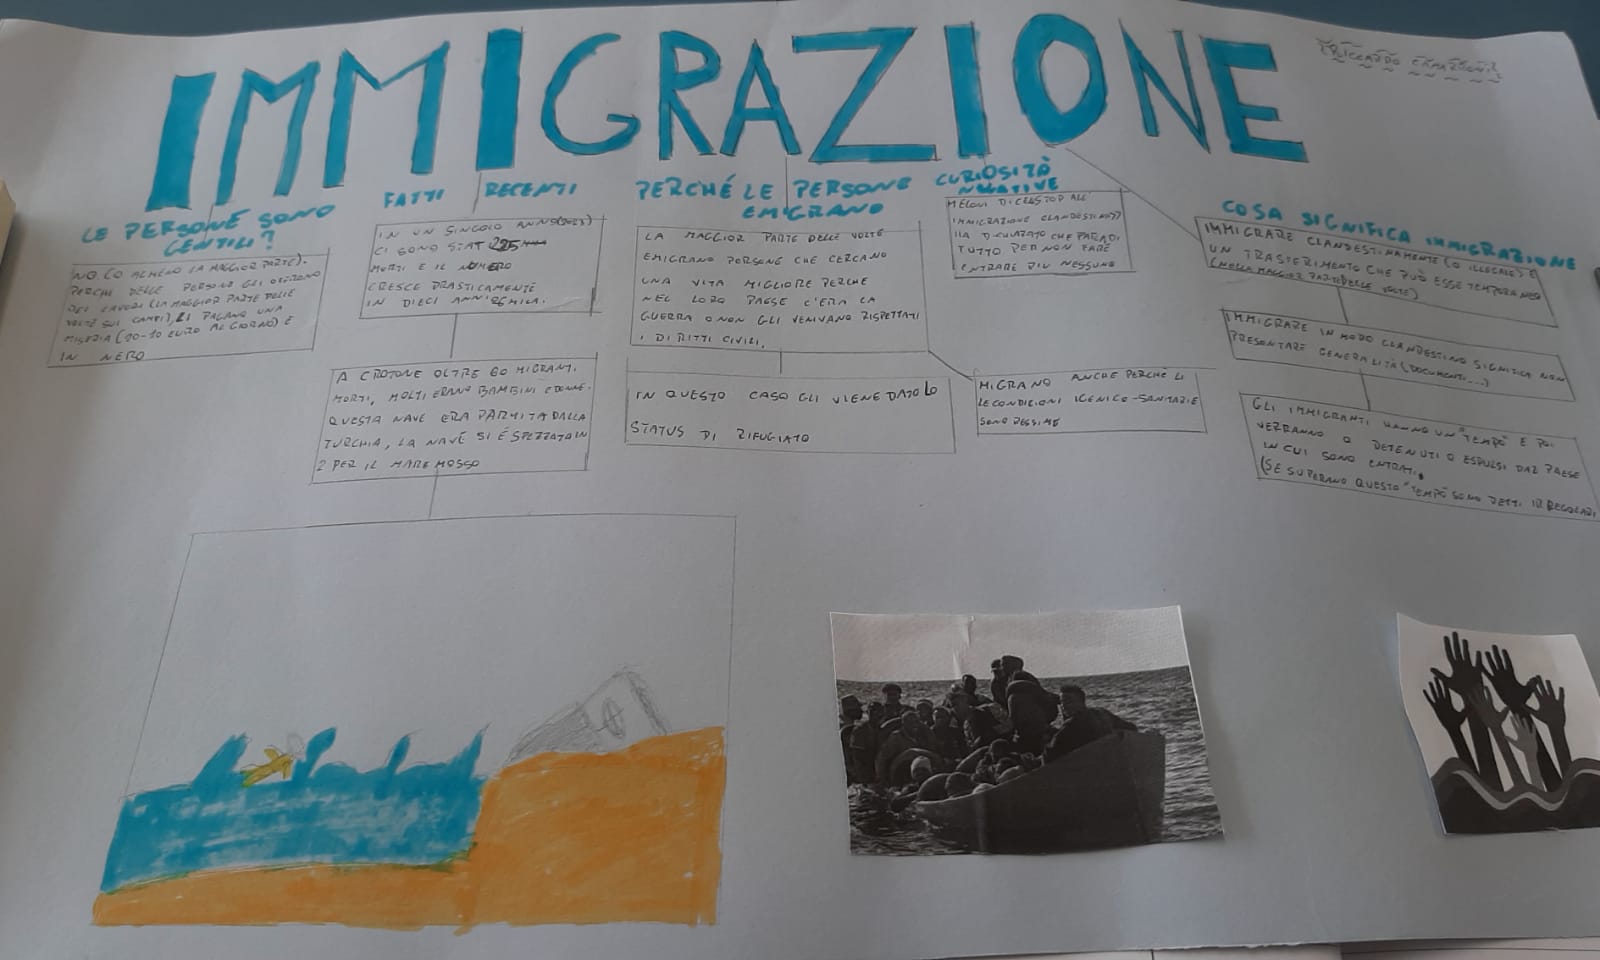 IMMIGRAZIONE
RICCARDO
LE PERSONE SONO
GENTILI?
NO (O ALMENO LA MAGGIOR PARTE).
PERCHE DELLE PERSONE GLI OFFRONO
DEI LAVORI (LA MAGGIOR PARTE DELLE
VOLTE SUI CAMPI), LI PAGANO UNA
MISERIA (20-10 EURO AL GIORNO) E
IN NERO
FATTI RECENTI
IN UN SINGOLO ANNO (2023)
CI SONO STATI 225
MORTI E IL NUMERO
CRESCE DRASTICAMENTE
IN DIECI ANNI 26MILA.
A CROTONE OLTRE 60 MIGRANTI
MORTI, MOLTI ERANO BAMBINI E DONNE.
QUESTA NAVE ERA PARTITA DALLA
TURCHIA, LA NAVE SI É SPEZZATA IN
2 PER IL MARE MOSSO
PERCHÉ LE PERSONE
EMIGRANO
LA MAGGIOR PARTE DELLE VOLTE
EMIGRANO PERSONE CHE CERCANO
UNA VITA MIGLIORE PERCHE
NEL LORO PAESE C'ERA LA
GUERRA O NON GLI VENIVANO RISPETTATI
I DIRITTI CIVILI.
IN QUESTO CASO GLI VIENE DATO LO
STATUS DI RIFUGIATO
MIGRANO ANCHE PERCHÈ LI
LE CONDIZIONI IGENICO-SANITARIE
SONO PESSIME
CURIOSITÀ
NEGATIVE
MELONI DICE STOP ALL'
IMMIGRAZIONE CLANDESTINA
HA DICHIARATO CHE FARA DI
TUTTO PER NON FARE
ENTRARE PIU NESSUNO
COSA SIGNIFICA IMMIGRAZIONE
IMMIGRARE CLANDESTINAMENTE (O ILLEGALE) E
UN TRASFERIMENTO CHE PUÒ ESSE TEMPORANEO
(NELLA MAGGIOR PARTE DELLE VOLTE)
IMMIGRARE IN MODO CLANDESTINO SIGNIFICA NON
PRESENTARE GENERALITÀ (DOCUMENTI...)
GLI IMMIGRANTI HANNO UN "TEMPO" E POI
VERRANNO O DETENUTI O ESPULSI DAL PAESE
IN CUI SONO ENTRATI.
(SE SUPERANO QUESTO "TEMPO" SONO DETTI IRREGOLARI